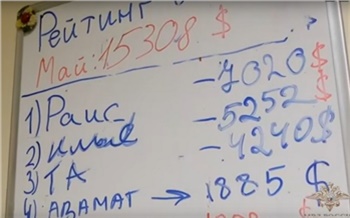 Рейтинг
Май: 15308 $
1) Раис - 7020 $
2) - 5252 $
3) ТА - 4240 $
4) АВАМАТ → 1885 $